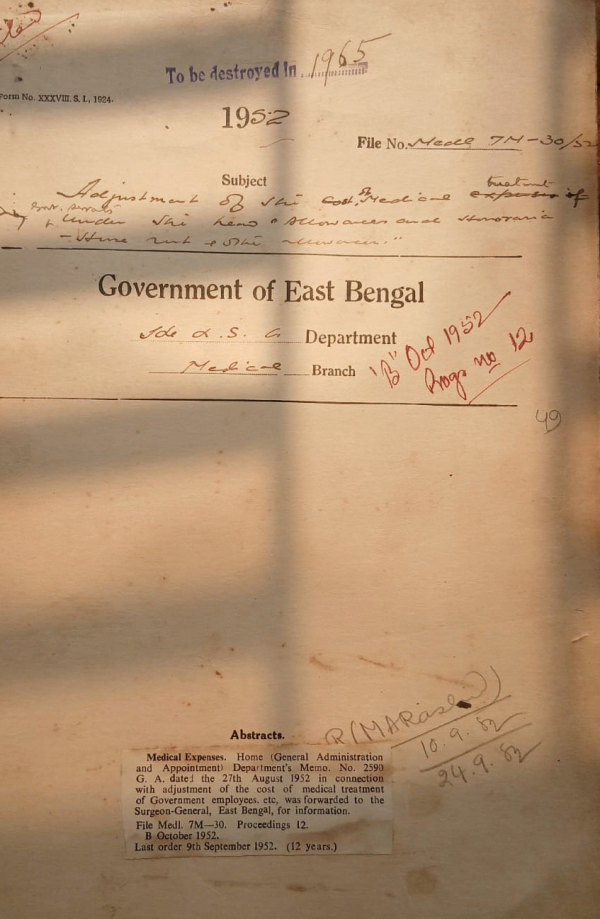 To be destroyed in 1965
Form No. XXXVIII. S. I., 1924.
1952
File No. Medl 7M-30/52
Subject
treatment
Adjustment of the cost of Medical expenses of
Govt. servants
under the head "Allowances and Honoraria
- House rent & other allowances."
Government of East Bengal
Department
Medical Branch
"B" Oct 1952
Progs no 12
49
Abstracts.
R (MARaslam)
10.9.82
24.9.82
Medical Expenses. Home (General Administration
and Appointment) Department's Memo. No. 2590
G. A. dated the 27th August 1952 in connection
with adjustment of the cost of medical treatment
of Government employees. etc, was forwarded to the
Surgeon-General, East Bengal, for information.
File Medl. 7M—30. Proceedings 12.
B October 1952.
Last order 9th September 1952. (12 years.)